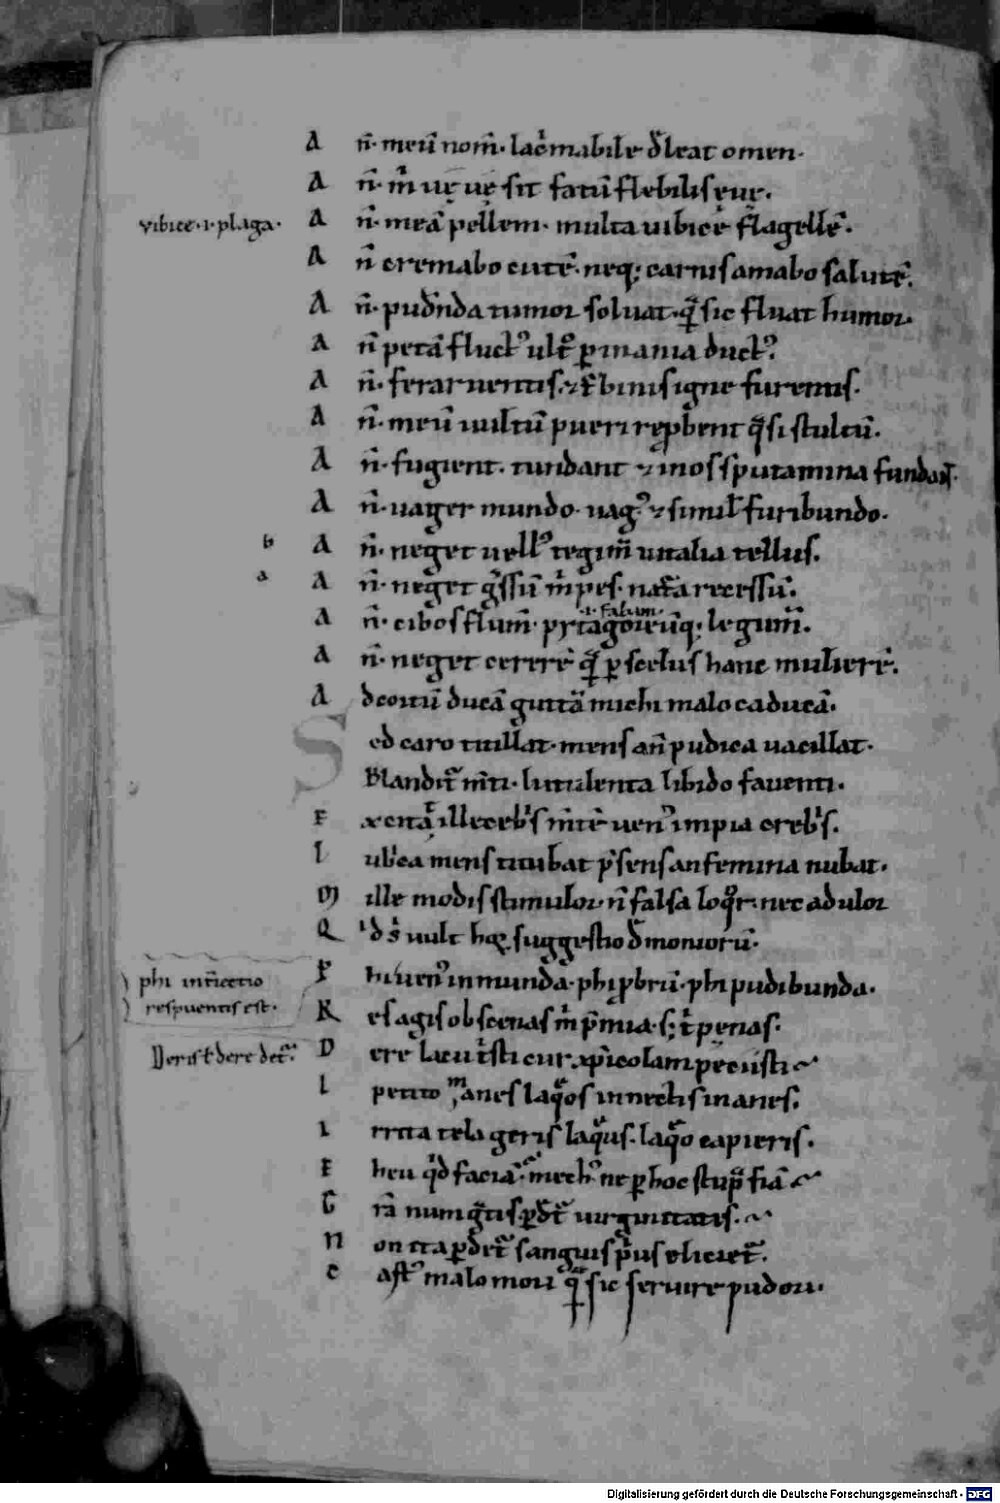 A n̄· meū nom̄· lac̄mabile d̄leat omen·
A n̄· m̄ ue ue sit fatū flebilis eue.
vibice·i·plaga· A n̄· meā pellem· multa uibice flagellē·
A n̄ cremabo cutē· neq; carnis amabo salutē.
A n̄· pud̄nda tumor soluat· q̄ sic fluat humor
A n̄ petā fluct᾿ ult᾿ p mania duct᾿
A n̄· ferar uentis· igne furentis·
A n̄· meū uultū pueri reprobent q̄si stultū·
A n̄· fugient· tundant & in os sputamina fundant·
A n̄· uager mundo· uag᾿ & simil furibundo·
b A n̄· neget uell᾿ tegim̄ uitalia tellus.
a A n̄· neget ḡssū m̄ pes· recessū·
·i· fabam·
A n̄· cibos flum̄· pytagoreūq; legum̄·
A n̄· neget cererē q̄ p scelus hanc muherē·
A dcoitū ducā guttā michi malo caducā·
S ed caro titillat· mens an̄ pudica uacillat·
Blandit᾿ m̄ti· lutulenta libido fauenti·
E xcitat illecebris m̄tē uen᾿ impia crebris·
L ub'ca mens titubat p̄sens an femina nubat·
M ille modis stimulor n̄ falsa loquor· nec adulor
Q 'd s' uult hoc suggestio d̄moniorū·
phi int̄iectio P hi uen᾿ inmunda· phi p̄brū· phi pudibunda·
respuentis est· R es agis obscenas m̄ p̄mia· s; t̄ penas·
Deris t̄ dere det᾿· D ere lacu t̄sti cur xp̄icolam petisti
I petito manes laq̄os innectis inanes.
I rrita tela geris laq̄us· laq̄o capieris·
E heu q̄d faciā· mech᾿ ne p hoc stup̄ fiā
G rā num q̄tis· p̄dt̄ uirginitatis·
N on ita p̄det᾿ sanguis p̄us eliciet᾿·
C ast᾿ malo mori q̄ sic seruire pudori·
Digitalisierung gefördert durch die Deutsche Forschungsgemeinschaft - DFG